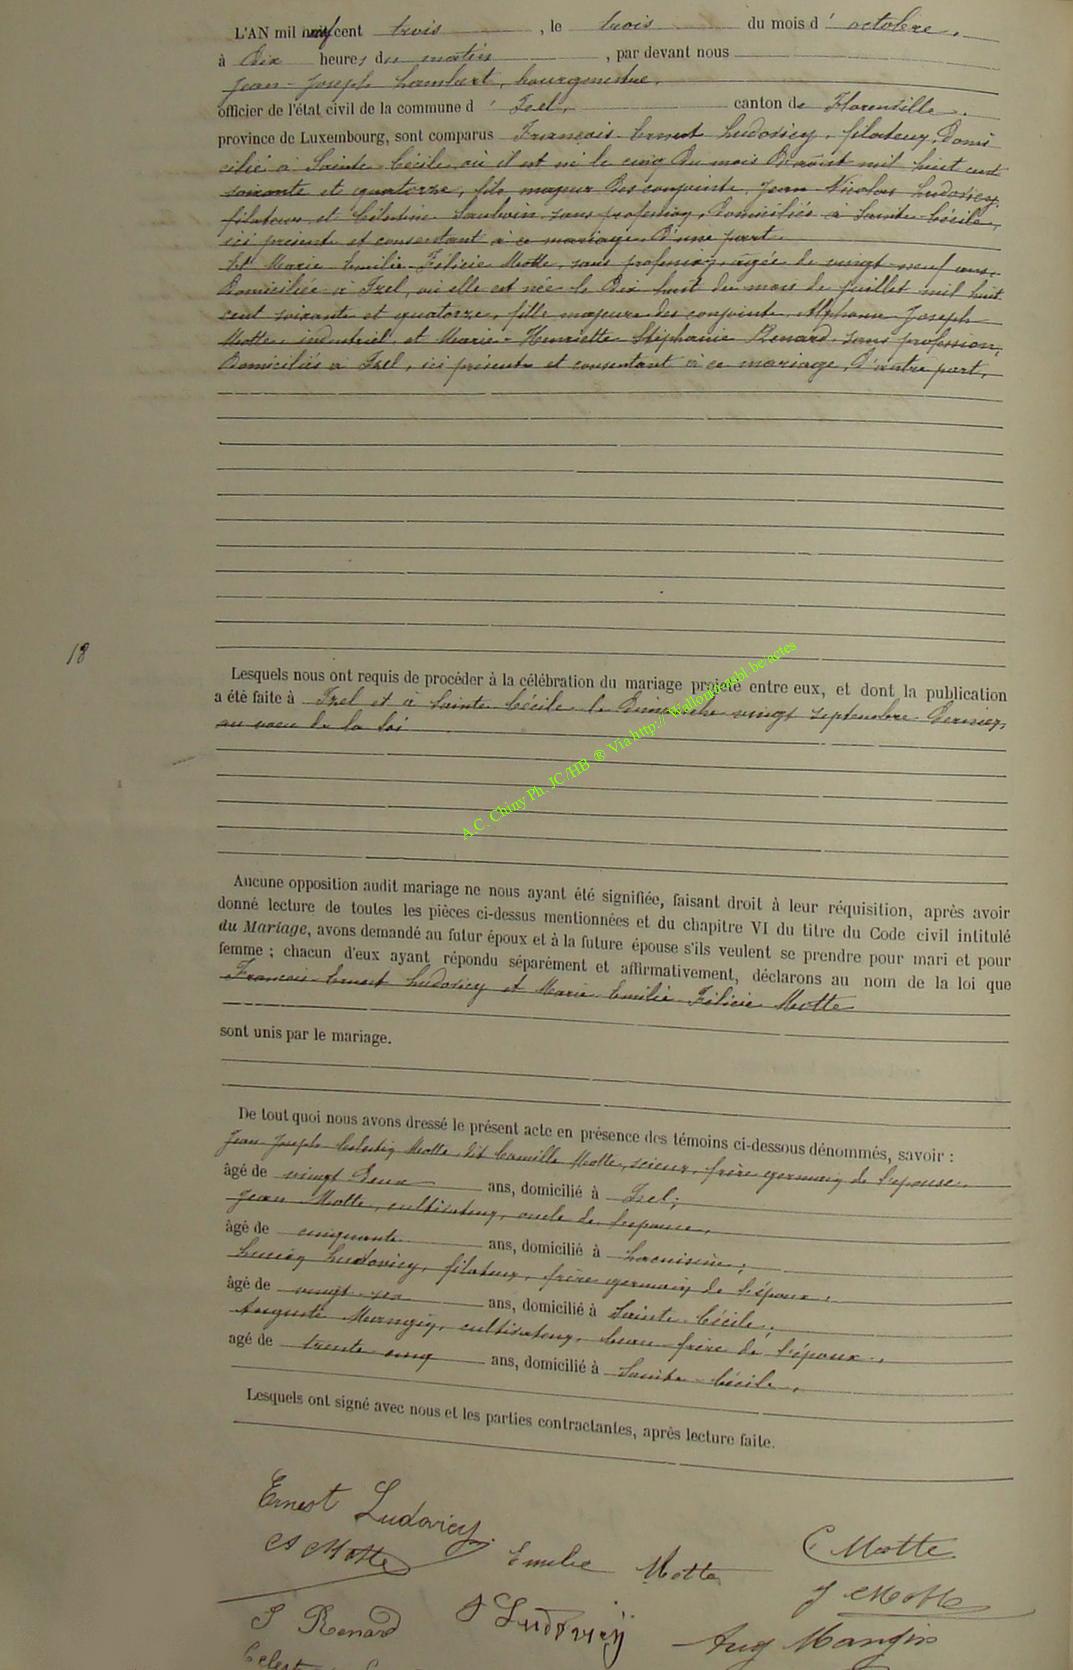 L'AN mil neuf cent trois, le trois du mois d'octobre,
à Dix heures du matin, par devant nous
Jean-Joseph Lambert, bourgmestre,
officier de l'état civil de la commune d'Izel, canton de Florenville,
province de Luxembourg, sont comparus François Ernest Ludovicy, filateur, Domi
cilié à Sainte Cécile où il est né le cinq du mois D'août mil huit cent
soixante et quatorze, fils majeur des conjoints Jean Nicolas Ludovicy,
filateur et Célestine sans profession, Domiciliés à Sainte Cécile,
ici présents et consentant à ce mariage D'une part.
Et Marie Emilie Félicie Motte, sans profession, âgée de vingt neuf ans,
Domiciliée à Izel, où elle est née le Dix huit du mois de Juillet mil huit
cent soixante et quatorze, fille majeure des conjoints Alphonse Joseph
Motte, industriel et Marie-Henriette Stéphanie Renard sans profession,
Domiciliés à Izel, ici présents et consentant à ce mariage, D'autre part,
18
Lesquels nous ont requis de procéder à la célébration du mariage projeté entre eux, et dont la publication
a été faite à Izel et à Sainte Cécile le Dimanche vingt septembre Dernier,
au vœu de la loi
A.C. Chiny Ph. JC/HB ® Via http://Wallondasbl.be/actes
Aucune opposition audit mariage ne nous ayant été signifiée, faisant droit à leur réquisition, après avoir
donné lecture de toutes les pièces ci-dessus mentionnées et du chapitre VI du titre du Code civil intitulé
du Mariage, avons demandé au futur époux et à la future épouse s'ils veulent se prendre pour mari et pour
femme ; chacun d'eux ayant répondu séparément et affirmativement, déclarons au nom de la loi que
François Ernest Ludovicy et Marie Emilie Félicie Motte
sont unis par le mariage.
De tout quoi nous avons dressé le présent acte en présence des témoins ci-dessous dénommés, savoir :
Jean Joseph Célestin Motte dit Camille Motte, scieur, frère germain de l'épouse,
âgé de vingt Deux ans, domicilié à Izel;
Jean Motte, cultivateur, oncle de l'épouse,
âgé de cinquante ans, domicilié à Lacuisine;
Lucien Ludovicy, filateur, frère germain de l'époux,
âgé de vingt six ans, domicilié à Sainte Cécile;
Auguste Mangin, cultivateur, beau frère de l'époux,
agé de trente cinq ans, domicilié à Sainte-Cécile,
Lesquels ont signé avec nous et les parties contractantes, après lecture faite.
Ernest Ludovicy
A Motte Emilie Motte C Motte
J Motte
S Renard Ludovicy Aug Mangin